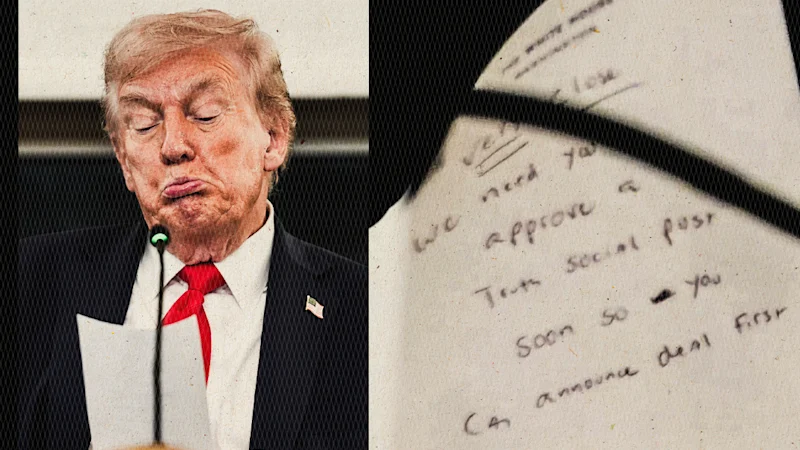 THE WHITE HOUSE
WASHINGTON
Very close
we need you
approve a
Truth social post
soon so you
Can announce deal first